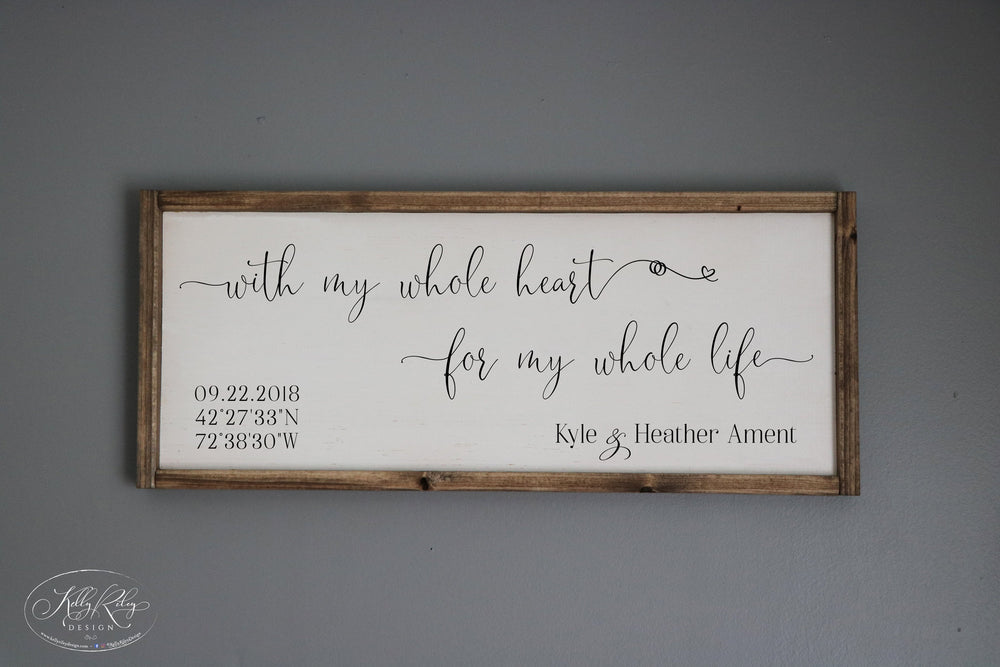 with my whole heart
for my whole life
09.22.2018
42°27'33"N
72°38'30"W
Kyle & Heather Ament
Kelly Riley
DESIGN
www.kellyrileydesign.com